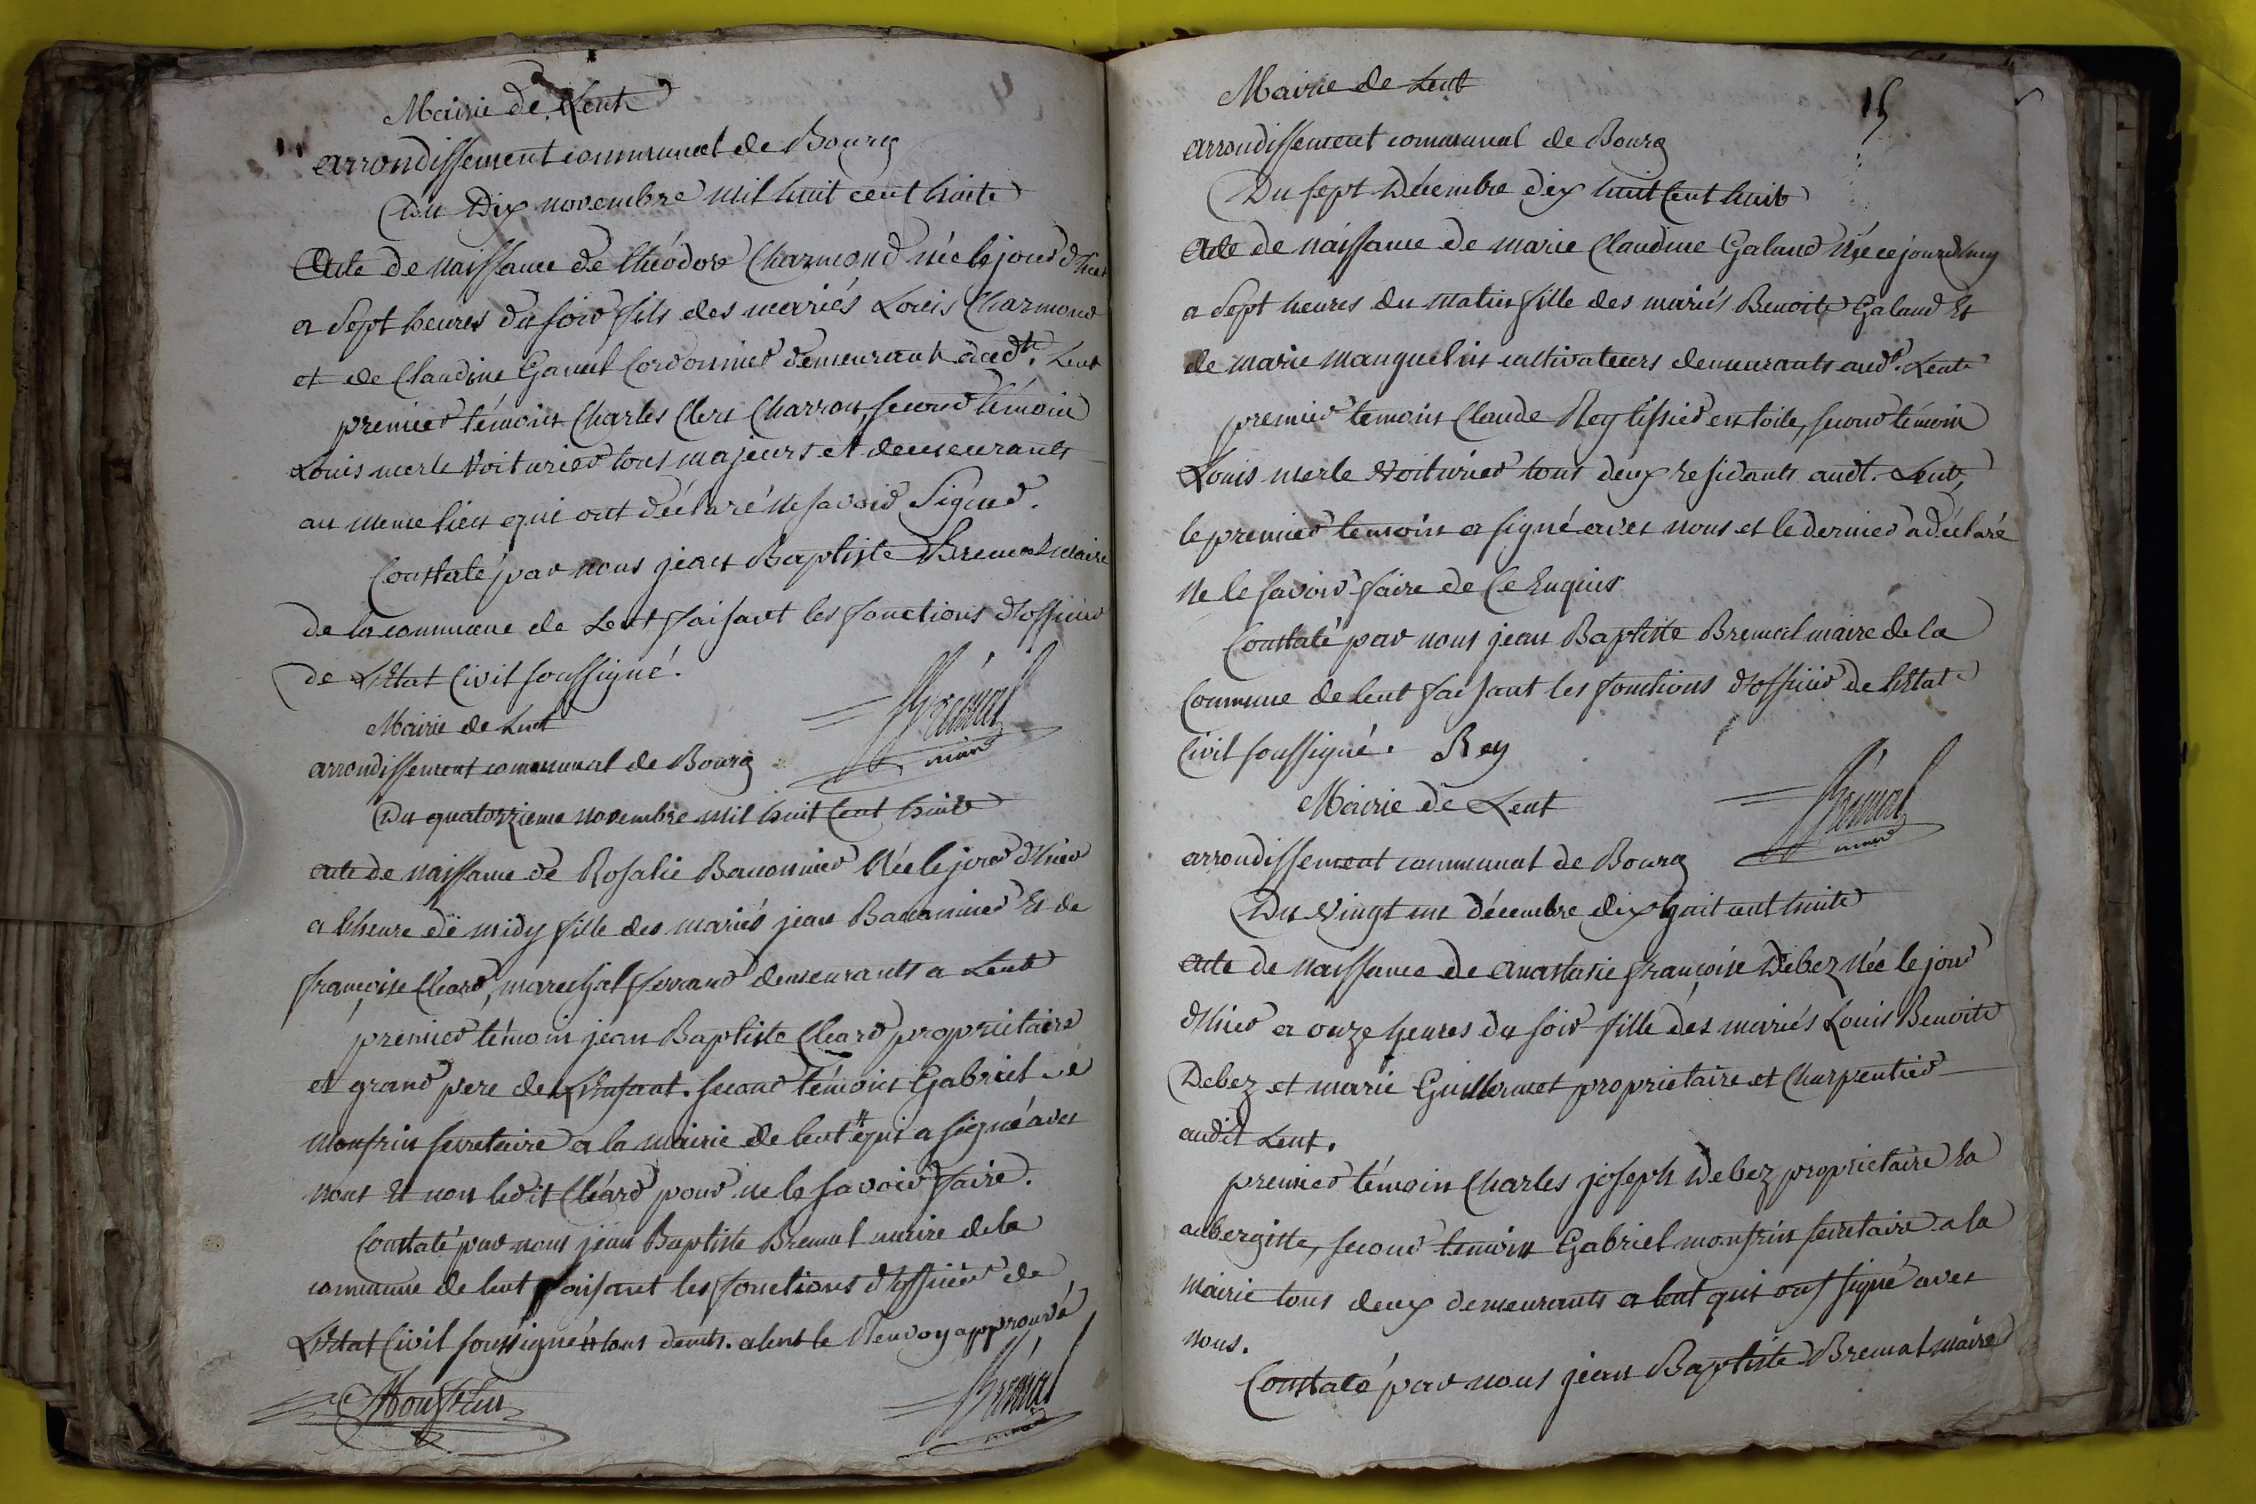 Mairie de Lent
arrondissement communal de Bourg
Du Dix novembre mil huit cent huite
Acte de naissance de Théodore Charmond née le jour d'hier
a Sept heures du soir fils des mariés Louis Charmond
et de Claudine Cordonnier demeurant Lent
premier témoin Charles Clerc Charron, second témoin
Louis merle Voiturier tous majeurs et demeurants
au meme lieu qui ont déclaré ne savoir Signer.
Constaté par nous jean Baptiste Bremal maire
de la commune de Lent faisant les fonctions d'officier
de L'Etat Civil soussigné.
Brémal
maire
Mairie de Lent
arrondissement communal de Bourg
Du quatorzieme novembre mil huit Cent huit
acte de naissance de Rosalie Baconnier Née le jour d'hier
a l'heure de midy fille des mariés jean Baconnier Et de
françoise Cléard, marechal ferrand demeurants a Lent
premier témoin jean Baptiste Cleard propriétaire
et grand pere de L'Enfant. second témoin Gabriel
monfrin secretaire a la mairie de lent # qui a signé avec
nous Et non ledit Cléard pour ne le savoir faire.
Constaté par nous jean Baptiste Bremal maire de la
commune de lent faisant les fonctions d'officier de
L'Etat Civil soussigné # tous demts. a lent le Renvoy approuvé
Monfrin
Brémal
maire
15
Mairie de Lent
arrondissement communal de Bourg
Du sept Décembre dix huit Cent huit
Acte de naissance de marie Claudine Galand Née ce jourd'huy
a Sept heures du matin fille des mariés Benoite Galand Et
de marie manguelin cultivateurs demeurants audt. Lent
premier temoin Claude Rey tissier en toile, second témoin
Louis merle Voiturier tous deux residants audt. Lent,
le premier temoin a signé avec nous et le dernier a déclaré
Ne le savoir faire de Ce Enquis
Constaté par nous jean Baptiste Bremal maire de la
Commune de lent faisant les fonctions d'officier de L'Etat
Civil soussigné. Rey
Brémal
maire
Mairie de Lent
arrondissement communal de Bourg
Du Vingt un décembre dix huit cent huite
acte de naissance de anastasie françoise Debez née le jour
d'hier a onze heures du soir fille des mariés Louis Benoite
Debez et marie Guillermet proprietaire et Charpentier
audit Lent.
premier témoin Charles joseph Debez proprietaire Ea
aubergiste, second temoin Gabriel monfrin secretaire a la
Mairie tous deux demeurants a lent qui ont signé avec
nous.
Constaté par nous jean Baptiste Bremal maire